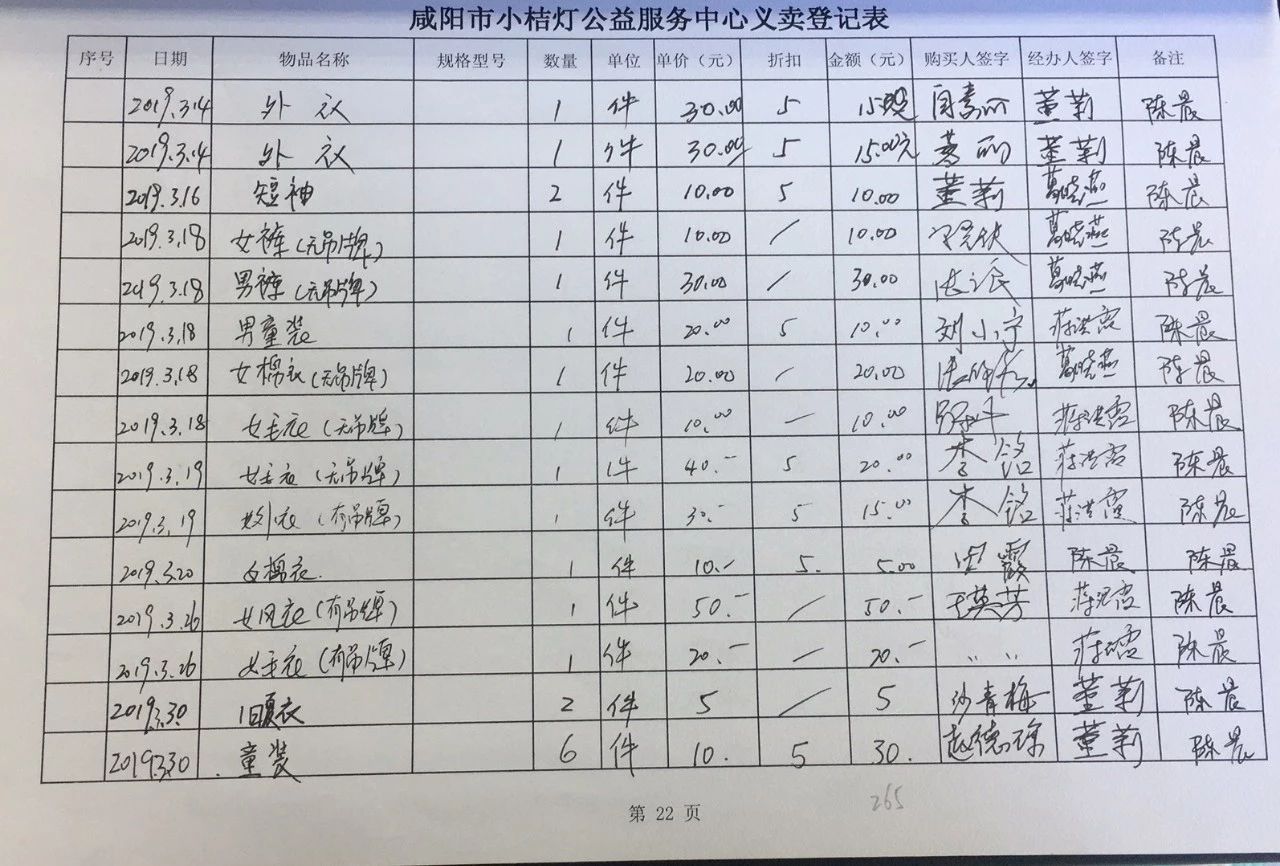 咸阳市小桔灯公益服务中心义卖登记表
序号 日期 物品名称 规格型号 数量 单位 单价（元） 折扣 金额（元） 购买人签字 经办人签字 备注
2019.3.14 外衣 1 件 30.00 5 15.00元 董莉 陈晨
2019.3.14 外衣 1 件 30.00 5 15.00元 葛丽 董莉 陈晨
2019.3.16 短袖 2 件 10.00 5 10.00 董莉 葛晓燕 陈晨
2019.3.18 女裤(无吊牌) 1 件 10.00 / 10.00 葛晓燕 陈晨
2019.3.18 男裤(无吊牌) 1 件 30.00 / 30.00 葛晓燕 陈晨
2019.3.18 男童装 1 件 20.00 5 10.00 刘小宁 蒋洪霞 陈晨
2019.3.18 女棉衣(无吊牌) 1 件 20.00 / 20.00 葛晓燕 陈晨
2019.3.18 女毛衣(无吊牌) 1 件 10.00 — 10.00 蒋洪霞 陈晨
2019.3.19 女毛衣(无吊牌) 1 件 40.- 5 20.00 李铭 蒋洪霞 陈晨
2019.3.19 女外衣(有吊牌) 1 件 30.- 5 15.00 李铭 蒋洪霞 陈晨
2019.3.20 女棉衣. 1 件 10.- 5. 5.00 陈晨 陈晨
2019.3.26 女风衣(有吊牌) 1 件 50.- / 50.- 王英芳 蒋洪霞 陈晨
2019.3.26 女毛衣(有吊牌) 1 件 20.- — 20.- 〃 〃 蒋洪霞 陈晨
2019.3.30 旧夏衣 2 件 5 / 5 沙青梅 董莉 陈晨
2019.3.30 童装 6 件 10. 5 30. 赵德琼 董莉 陈晨
第 22 页
265